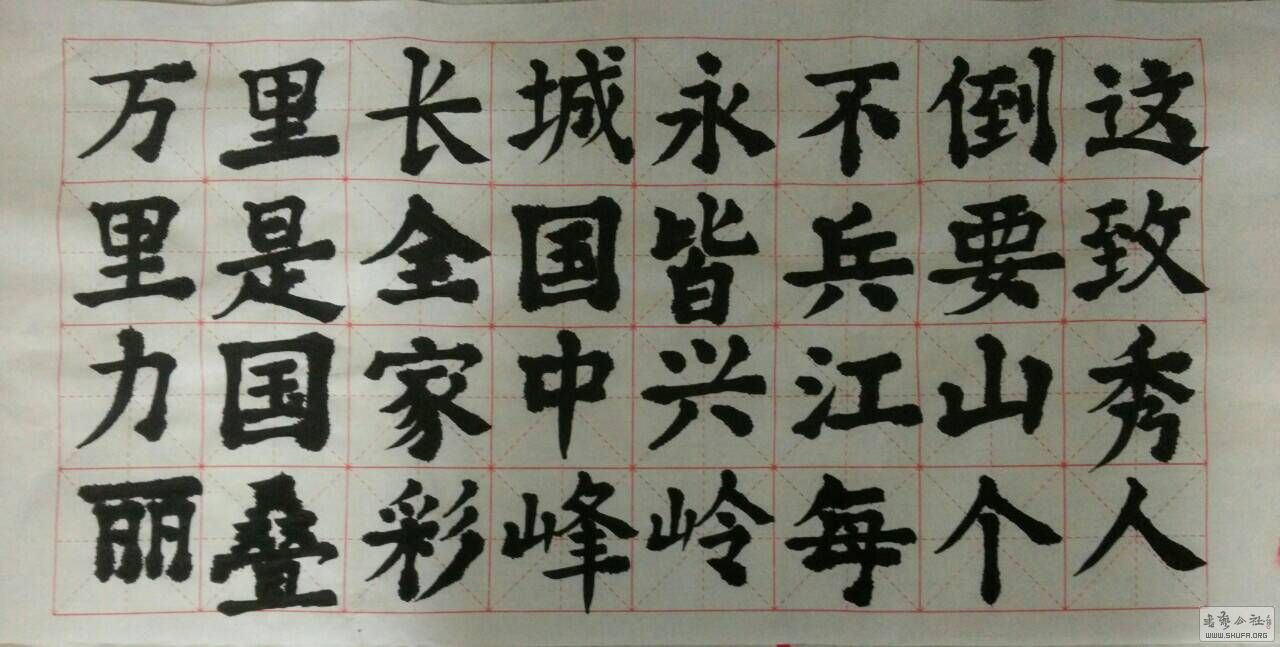 万里长城永不倒这
里是全国皆兵要致
力国家中兴江山秀
丽叠彩峰岭每个人
WWW.SHUFA.ORG